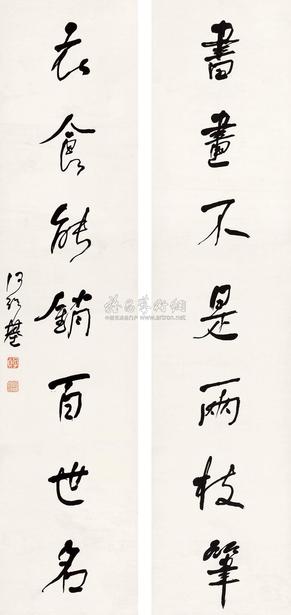 書畫不是兩枝筆
衣食能銷百世名
何紹基
雅昌藝術網
www.artron.net